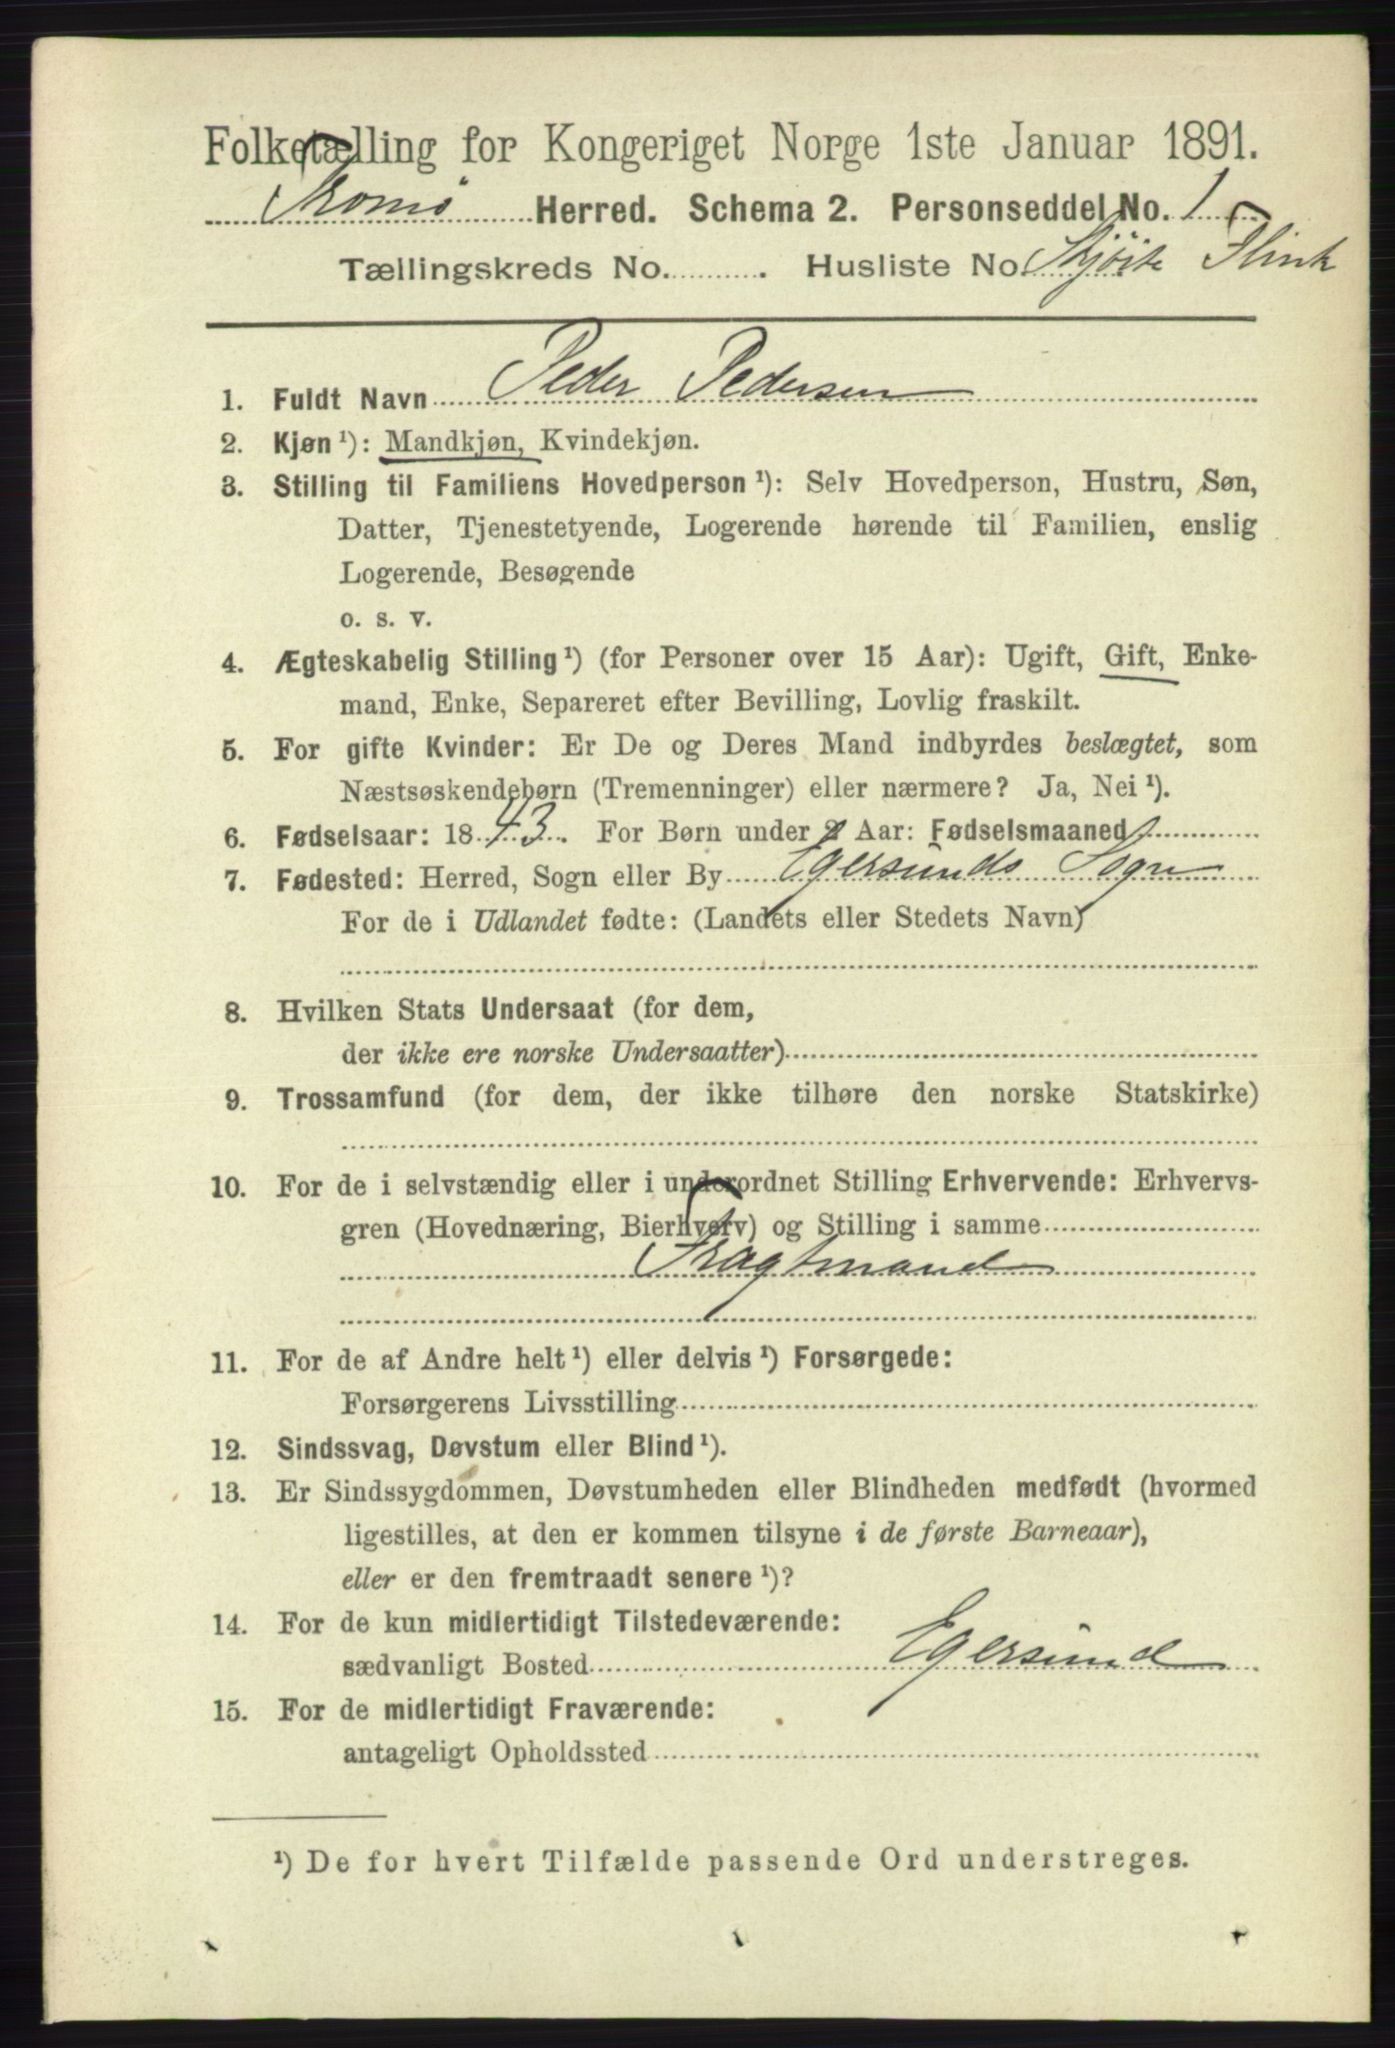 Folketælling for Kongeriget Norge 1ste Januar 1891.
Tromø Herred. Schema 2. Personseddel No. 1
Tællingskreds No. . Husliste No. Skjöite Flink
1. Fuldt Navn Peder Pedersen
2. Kjøn ¹): Mandkjøn, Kvindekjøn.
3. Stilling til Familiens Hovedperson ¹): Selv Hovedperson, Hustru, Søn,
Datter, Tjenestetyende, Logerende hørende til Familien, enslig
Logerende, Besøgende
o. s. v.
4. Ægteskabelig Stilling ¹) (for Personer over 15 Aar): Ugift, Gift, Enke-
mand, Enke, Separeret efter Bevilling, Lovlig fraskilt.
5. For gifte Kvinder: Er De og Deres Mand indbyrdes beslægtet, som
Næstsøskendebørn (Tremenninger) eller nærmere? Ja, Nei ¹).
6. Fødselsaar: 1843. For Børn under 2 Aar: Fødselsmaaned
7. Fødested: Herred, Sogn eller By Egersunds Sogn
For de i Udlandet fødte: (Landets eller Stedets Navn)
8. Hvilken Stats Undersaat (for dem,
der ikke ere norske Undersaatter)
9. Trossamfund (for dem, der ikke tilhøre den norske Statskirke)
10. For de i selvstændig eller i underordnet Stilling Erhvervende: Erhvervs-
gren (Hovednæring, Bierhverv) og Stilling i samme
Fragtmand
11. For de af Andre helt ¹) eller delvis ¹) Forsørgede:
Forsørgerens Livsstilling
12. Sindssvag, Døvstum eller Blind ¹).
13. Er Sindssygdommen, Døvstumheden eller Blindheden medfødt (hvormed
ligestilles, at den er kommen tilsyne i de første Barneaar),
eller er den fremtraadt senere ¹)?
14. For de kun midlertidigt Tilstedeværende:
sædvanligt Bosted Egersund
15. For de midlertidigt Fraværende:
antageligt Opholdssted
¹) De for hvert Tilfælde passende Ord understreges.